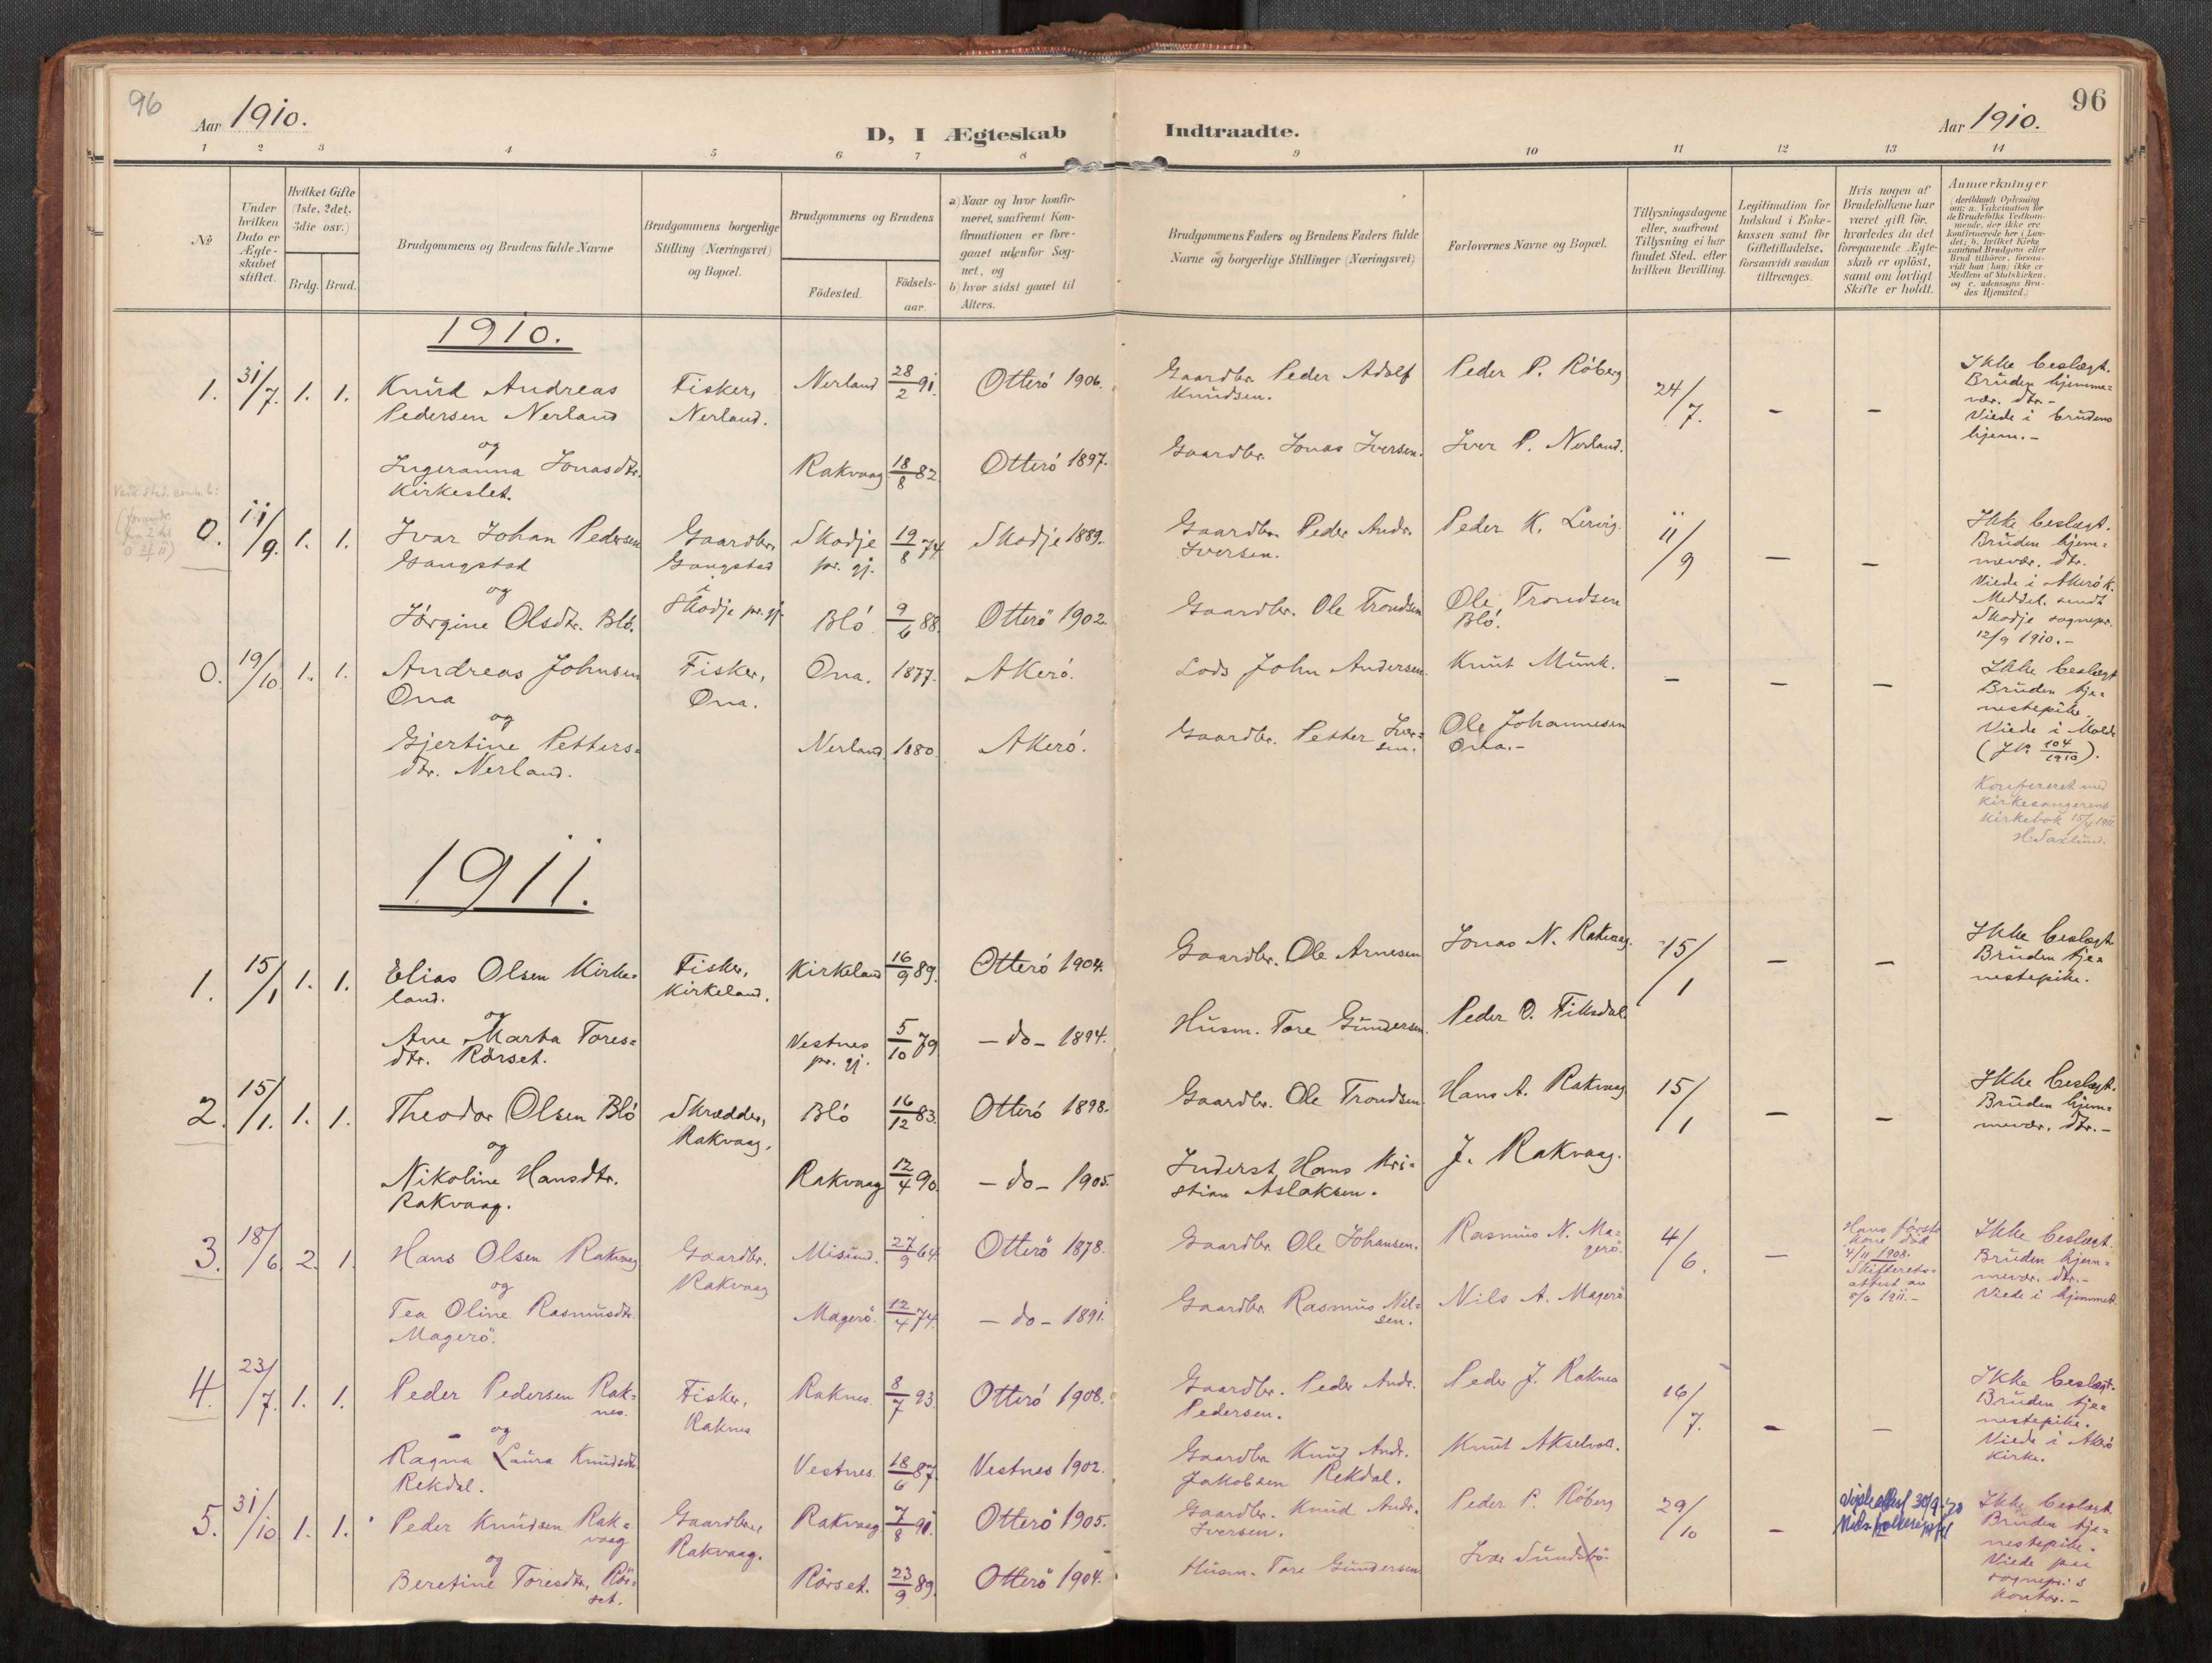 96
Aar 1910.
D, I Ægteskab Indtraadte.
Aar 1910.
96
1 2 3 4 5 6 7 8 9 10 11 12 13 14
№
Under hvilken Dato er Ægteskabet stiftet.
Hvilket Gifte (1ste, 2det, 3die osv.)
Brdg. Brud.
Brudgommens og Brudens fulde Navne
Brudgommens borgerlige Stilling (Næringsvei) og Bopæl.
Brudgommens og Brudens
Födested.
Födsels-aar.
a) Naar og hvor konfirmeret, saafremt Konfirmationen er foregaaet udenfor Sognet, og
b) hvor sidst gaaet til Alters.
Brudgommens Faders og Brudens Faders fulde Navne og borgerlige Stillinger (Næringsvei)
Forlovernes Navne og Bopæl.
Tillysningsdagene eller, saafremt Tillysning ei har fundet Sted, efter hvilken Bevilling.
Legitimation for Indskud i Enkekassen samt for Giftetilladelse, forsaavidt saadan tiltrænges.
Hvis nogen af Brudefolkene har været gift för, hvorledes da det foregaaende Ægteskab er oplöst, samt om lovligt Skifte er holdt.
Anmærkninger
1910.
1. 31/7. 1. 1. Knud Andreas Fisker, Nerland 28/2 91. Otterö 1906. Gaardbr. Peder Adolf Peder P. Röberg 24/7. - - Ikke beslægt.
Pedersen Nerland Nerland. Knudsen. Brüden hjemme=
og vær. dtr. -
Ingeranna Jonasdtr. Rakvaag 18/8 82. Otterö 1897. Gaardbr. Jonas Iversen. Iver P. Nerland. Viede i brudens
Kirkeslet. hjem. -
0. 11/9. 1. 1. Ivar Johan Pedersen Gaardbr, Skodje 19/8 74. Skodje 1889. Gaardbr. Peder Andr. Peder K. Lervig. 11/9 - - Ikke beslægt.
Gangstad Gangstad pr. gj. Iversen. Brüden hjem=
og i mevær. dtr.
Jörgine Olsdtr. Blö. Skodje pr. gj. Blö 9/6 88. Otterö 1902. Gaardbr. Ole Trondsen Ole Trondsen Viede i Akerö k.
Blö. Meddel. sendt
Skodje sognepr.
12/9 1910. -
0. 19/10. 1. 1. Andreas Johnsen Fisker, Ona. 1877. Akerö. Lods John Andersen. Knut Munk. - - - Ikke beslægt
Ona Ona. Brüden tje=
og nestepike.
Gjertine Petters= Nerland. 1880. Akerö. Gaardbr. Petter Iver= Ole Johannesen Viede i Molde
dtr. Nerland. sen. Ona. - (JNr 104/1910).
Konfereret med
kirkesangerens
kirkebok 15/4 1911
1911.
1. 15/1 1. 1. Elias Olsen Kirke= Fisker, Kirkeland 16/9 89. Otterö 1904. Gaardbr. Ole Arnesen Jonas N. Rakvaag. 15/1 - - Ikke beslægt
land. Kirkeland. Brüden tje=
og nestepike.
Ane Marta Tores= Vestnes 5/10 79. - do - 1894. Husm. Tore Gundersen. Peder O. Fiksdal.
dtr. Rörset. pr. gj.
2. 15/1. 1. 1. Theodor Olsen Blö Skrædder, Blö 16/12 83. Otterö 1898. Gaardbr. Ole Trondsen. Hans A. Rakvaag 15/1 - - Ikke beslægt.
og Rakvaag. Brüden hjem=
Nikoline Hansdtr. Rakvaag 12/4 90. - do - 1905. Inderst Hans Kri= J. Rakvaag. mevær. dtr. -
Rakvaag. stian Aslaksen.
3. 18/6 2. 1. Hans Olsen Rakvaag Gaardbr. Misund. 27/9 64. Otterö 1878. Gaardbr. Ole Johansen. Rasmus N. Ma= 4/6. - Hans förste Ikke beslægt.
og Rakvaag gerö. kone död Brüden hjem=
4/11 1908. mevær. dtr. -
Skifterets= Viede i hjemmet.
attest av
Tea Oline Rasmusdtr. Magerö. 12/4 74. - do - 1891. Gaardbr. Rasmus Nil= Nils A. Magerö 8/6 1911. -
Magerö. sen.
4. 23/7. 1. 1. Peder Pedersen Rak= Fisker, Raknes. 8/7 93. Otterö 1908. Gaardbr. Peder Andr. Peder J. Raknes 16/7. - - Ikke beslægt.
nes. Raknes Pedersen. Brüden tje=
og nestepike.
Ragna Laura Knudsdtr. Vestnes. 18/6 87. Vestnes 1902. Gaardbr. Knud Andr. Knut Akselvoll. Viede i Akerö
Rekdal. Jakobsen Rekdal. kirke.
5. 31/10 1. 1. Peder Knudsen Rak= Gaardbr., Rakvaag 7/8 91. Otterö 1905. Gaardbr. Knud Andr. Peder P. Röberg 29/10 - Ikke beslægt
vaag Rakvaag. Iversen. Brüden tje=
og nestepike.
Beretine Toresdtr. Rör= Rörset. 23/9 89. Otterö 1904. Husm. Tore Gundersen Ivar Sundsbö. Viede paa
set. sognepr:s
kontor. -